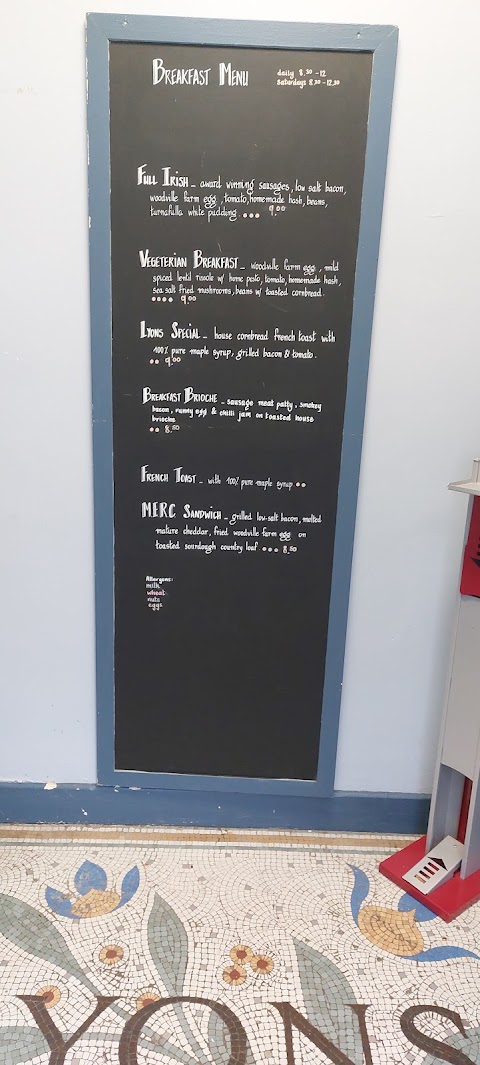 Breakfast Menu
daily 8.30 - 12
saturdays 8.30 - 12.30
Full Irish - award winning sausages, low salt bacon,
woodville farm egg, tomato, homemade hash, beans,
turnafulla white pudding. 9.00
Vegeterian Breakfast - woodville farm egg, mild
spiced lentil rissole w/ home pesto, tomato, homemade hash,
sea salt fried mushrooms, beans w/ toasted cornbread.
9.00
Lyons Special - house cornbread french toast with
100% pure maple syrup, grilled bacon & tomato.
9.00
Breakfast Brioche - sausage meat patty, smokey
bacon, runny egg & chilli jam on toasted house
brioche
8.50
French Toast - with 100% pure maple syrup
M.E.R.C. Sandwich - grilled low-salt bacon, melted
mature cheddar, fried woodville farm egg on
toasted sourdough country loaf 8.50
Allergens:
milk
wheat
nuts
eggs
YONS